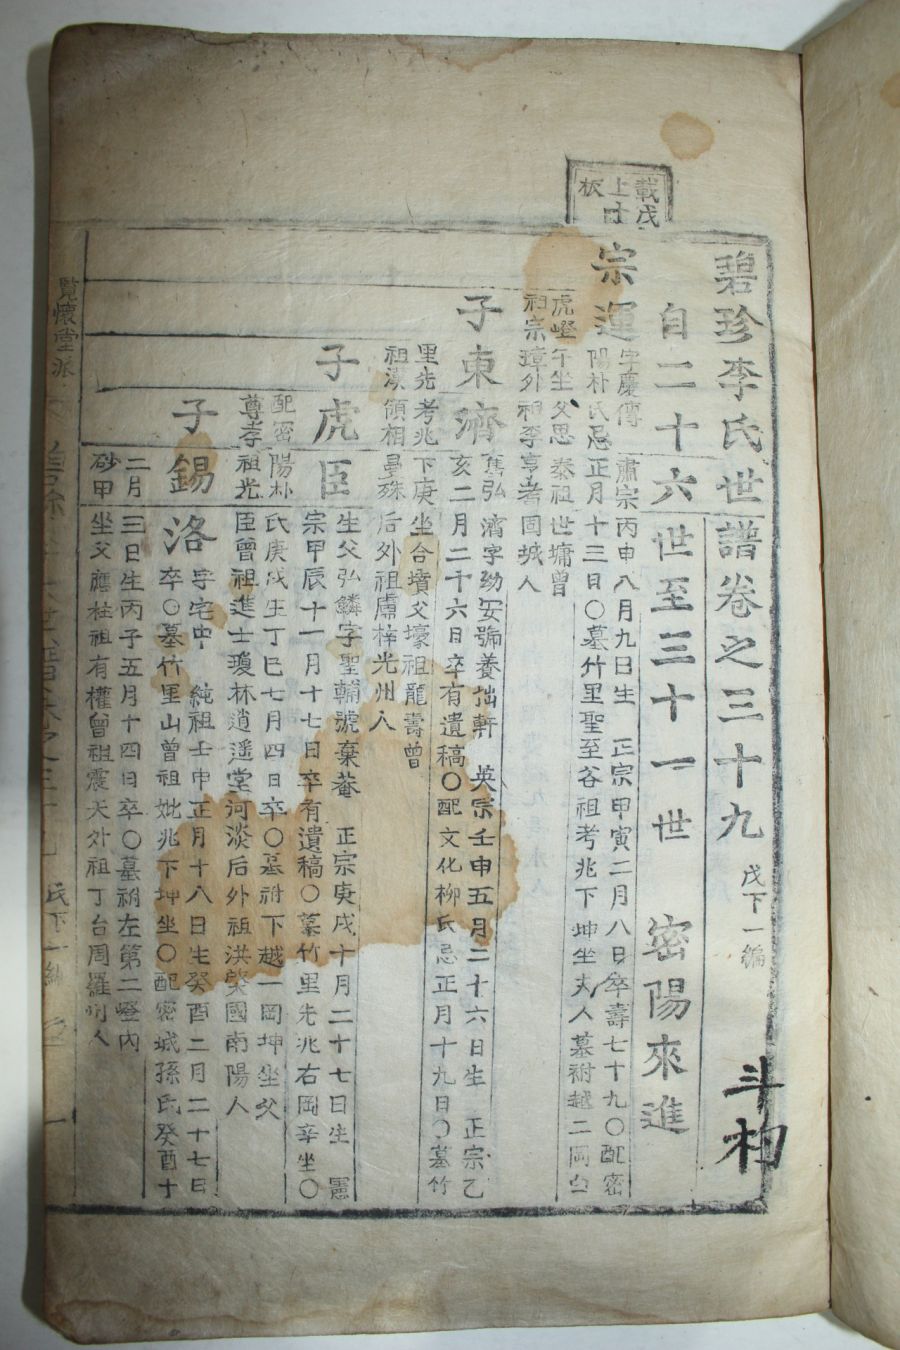 載戊
上十
板
碧珍李氏世譜卷之三十九 戊下一編
斗杓
自二十六世至三十一世 密陽來進
宗運
字慶傳 肅宗丙申八月九日生 正宗甲寅二月八日卒壽七十九〇配密
陽朴氏忌正月十三日〇墓竹里聖至谷祖考兆下坤坐夫人墓祔越二岡
虎嶝午坐父思泰祖世墉曾
祖宗璋外祖李亨耉固城人
子東濟
雋弘濟字幼安號養拙軒 英宗壬申五月二十六日生 正宗乙
亥二月二十六日卒有遺稿〇配文化柳氏忌正月十九日〇墓竹
里先考兆下庚坐合墳父壕祖龍壽曾
祖漢領相曼殊后外祖盧梓光州人
子虎臣
生父弘鱗字聖輔號棄菴 正宗庚戌十月二十七日生 憲
宗甲辰十一月十七日卒有遺稿〇墓竹里先兆右岡辛坐〇
配密陽朴氏庚戌生丁巳七月四日卒〇墓祔下越一岡坤坐父
尊孝祖光臣曾祖進士瓊林逍遥堂河淡后外祖洪榮國南陽人
子錫洛
字宅中 純祖壬申正月十八日生癸酉二月二十七日
卒〇墓竹里山曾祖妣兆下坤坐〇配密城孫氏癸酉十
二月三日生丙子五月十四日卒〇墓祔左第二嶝內
砂甲坐父應柱祖有權曾祖震天外祖丁台周羅州人
覧懷堂派